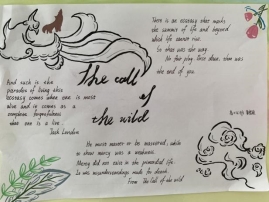 There is an ecstasy that marks
the summit of life and beyond
which life cannot rise.
So that was the way.
No fair play. Once down, that was
the end of you.
The call
of
the wild
And such is the
paradox of living, this
ecstasy comes when one is most
alive and it comes as a
complete forgetfulness
that one is alive.
Jack London
He must master or be mastered, while
to show mercy was a weakness.
Mercy did not exist in the primordial life.
It was misunderstandings made for death.
From The Call of the wild